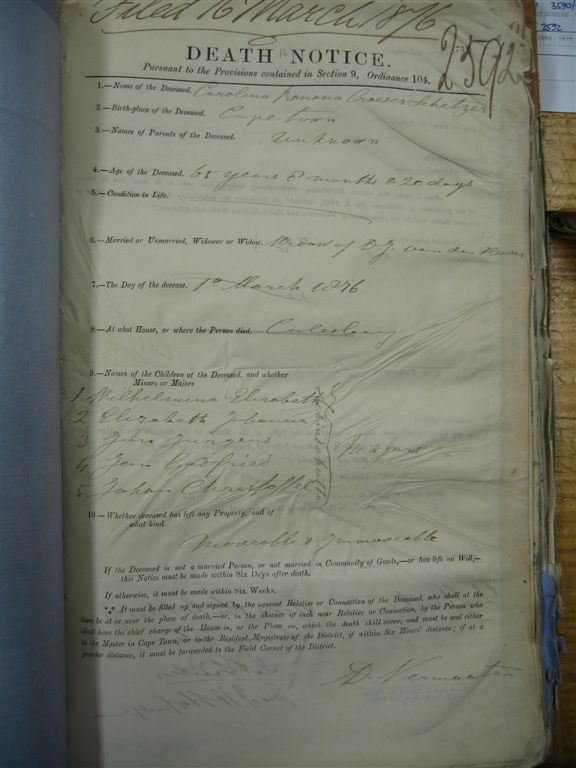 Filed 16 March 1876
2592
DEATH NOTICE.
Pursuant to the Provisions contained in Section 9, Ordinance 104.
1.—Name of the Deceased. Carolina
2.—Birth-place of the Deceased. Cape Town
3.—Names of Parents of the Deceased. Unknown
4.—Age of the Deceased. 65 years 8 months & 20 days
5.—Condition in Life.
6.—Married or Unmarried, Widower or Widow. Widow of D. J. van der
7.—The Day of the decease. 1st March 1876
8.—At what House, or where the Person died. Culesberg
9.—Names of the Children of the Deceased, and whether
Minors or Majors
1 Wilhelmina Elizabeth
2 Elizabeth Johanna
3 Jurgens
4 Jan Godfried
5 Johan Christoffel
Majors
10.—Whether deceased has left any Property, and of
what kind.
Moveable & Immoveable
If the Deceased is not a married Person, or not married in Community of Goods,—or has left no Will,—
this Notice must be made within Six Days after death.
If otherwise, it must be made within Six Weeks.
It must be filled up and signed by the nearest Relative or Connection of the Deceased, who shall at the
time be at or near the place of death,—or, in the absence of such near Relative or Connection, by the Person who
shall have the chief charge of the House in, or the Place on, which the death shall occur, and must be sent either
to the Master in Cape Town, or to the Resident Magistrate of the District, if within Six Hours' distance; if at a
greater distance, it must be forwarded to the Field Cornet of the District.
D. Vermaater